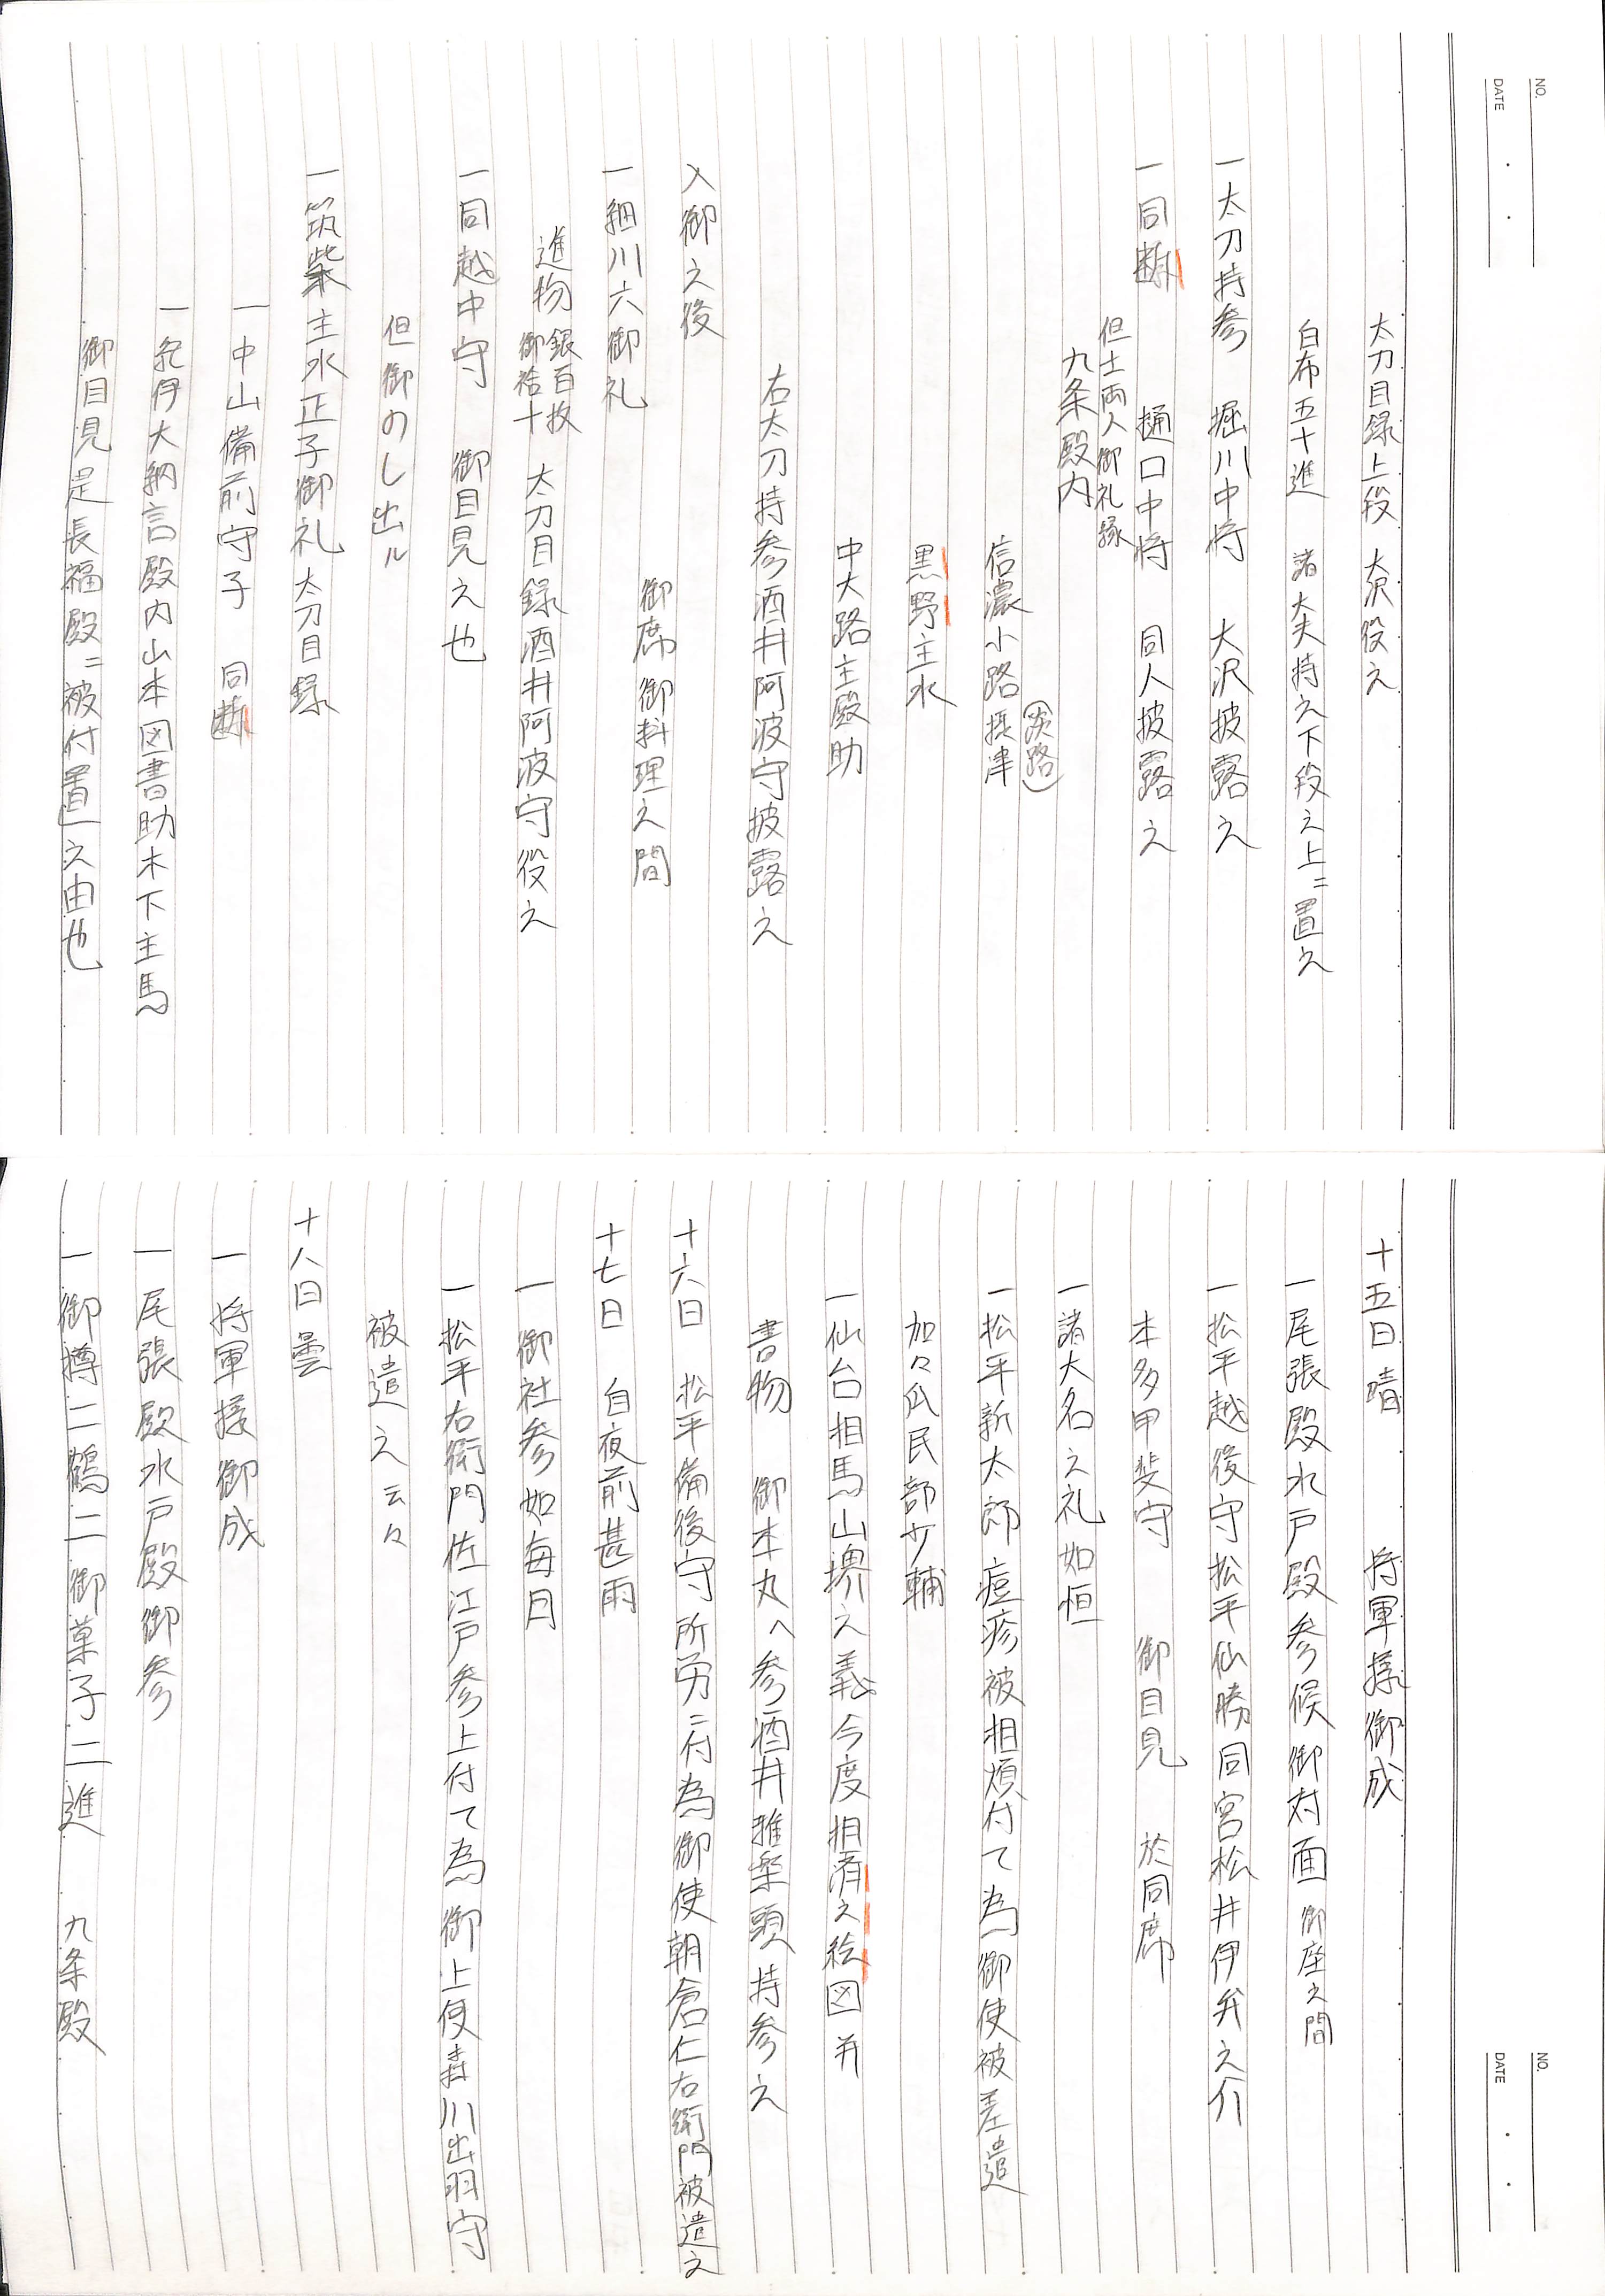 NO.
DATE
太刀目録上段 大沢役之
白布五十進 諸大夫持之下段之上ニ置之
一太刀持参 堀川中将 大沢披露之
一同断 樋口中将 同人披露之
但士両人御礼縁
九条殿内
(淡路)
信濃小路摂津
黒野主水
中大路主殿助
右太刀持参酒井阿波守披露之
入御之後
御席御料理之間
一細川六御礼
進物 銀百枚 御袷十 太刀目録酒井阿波守役之
一同越中守 御目見之也
但御のし出ル
一筑紫主水正子御礼太刀目録
一中山備前守子 同断
一紀伊大納言殿内山本図書助木下主馬
御目見是長福殿ニ被付置之由也
NO.
DATE
十五日晴 将軍様御成
一尾張殿水戸殿参候御対面 御座之間
一松平越後守松平仙勝同宮松井伊弁之介
本多甲斐守 御目見 於同席
一諸大名之礼如恒
一松平新太郎痘疹被相煩付て為御使被差遣
加々爪民部少輔
一仙台相馬山堺之義今度相済之絵図并
書物 御本丸へ参酒井雅楽頭持参之
十六日 松平備後守所労ニ付為御使朝倉仁右衛門被遣之
十七日 自夜前甚雨
一御社参如毎月
一松平右衛門佐江戸参上付て為御上使森川出羽守
被遣之云々
十八日曇
一将軍様御成
一尾張殿水戸殿御参
一御樽二鶴二御菓子二進 九条殿